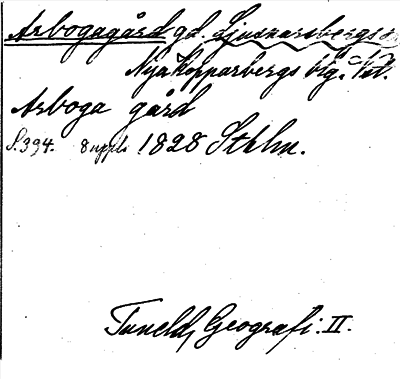 Arbogagård gd. Ljusnarsbergs s
Nya Kopparbergs blg. Vst.
Arboga gård
S. 394. 8 uppl. 1828 Sthlm.
Tuneld, Geografi. II.